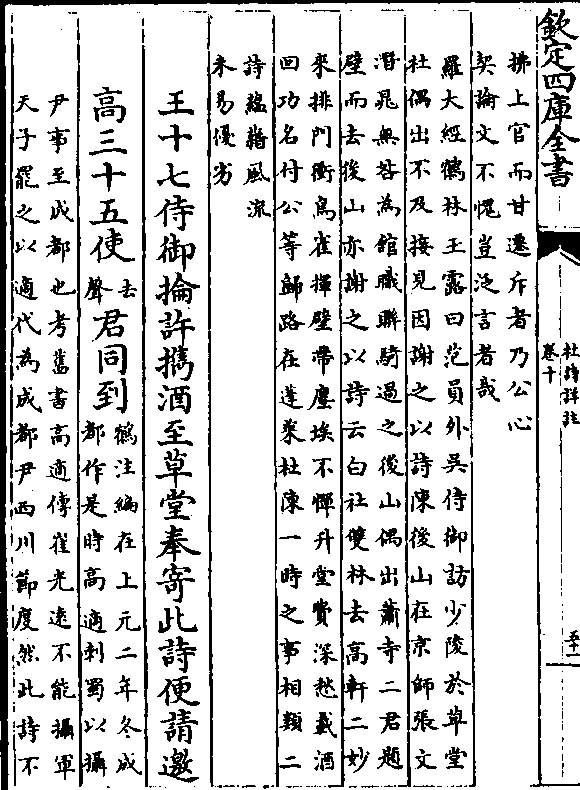 欽定四庫全書
杜詩詳註
卷十
五十一
拂上官而甘遷斥者乃公心
契論文不愧豈泛言者哉
羅大經鶴林玉露曰范員外吳侍御訪少陵於草堂
杜偶出不及接見因謝之以詩陳後山在京師張文
潛晁無咎為館職聯騎過之後山偶出蕭寺二君題
壁而去後山亦謝之以詩云白社雙林去高軒二妙
來排門衝鳥雀揮壁帶塵埃不憚升堂費深愁載酒
回功名付公等歸路在蓬萊杜陳一時之事相類二
詩蘊藉風流
未易優劣
王十七侍御掄許攜酒至草堂奉寄此詩便請邀
高三十五使去聲君同到鶴注編在上元二年冬成
都作是時高適刺蜀以攝
尹事至成都也考舊書高適傳崔光遠不能攝軍
天子罷之以適代為成都尹西川節度然此詩不